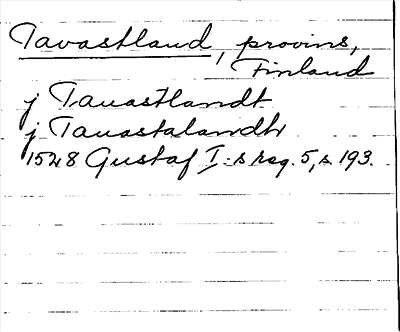 Tavastland, provins,
Finland
j Tauastlandt
j Tauastalandh
1528 Gustaf I:s reg. 5, s. 193.